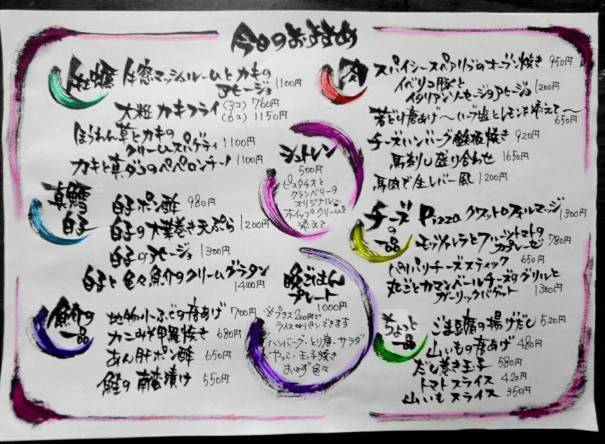 今日のおすすめ
牡蠣
生窓マッシュルームとカキの
アヒージョ 1100円
大粒カキフライ (3コ) 760円
(6コ) 1150円
ほうれん草とカキの
クリームスパゲティ 1100円
カキと真ダラのペペロンチーノ 1100円
真鱈
白子
白子ポン酢 980円
白子の大葉巻き天ぷら 1200円
白子のアヒージョ 1300円
白子と魚介のクリームグラタン 1400円
魚介の
一品
地物小ふぐの唐揚げ 700円
カニみそ甲羅焼き 680円
あん肝ポン酢 650円
鮭の南蛮漬け 550円
シュトレン
500円
ピスタチオと
クランベリーの
オリジナルな
ホイップクリームを
添えて
晩ごはん
プレート
1000円
※プラス200円で
ライスorパンできます
ハンバーグ・とり唐・サラダ
やっこ・玉子焼き
おかず色々
肉
スパイシースペアリブのオーブン焼き 950円
イベリコ豚と
イタリアンソーセージのアヒージョ 1200円
若どり唐あげ〜ハーブ塩とレモンを添えて〜
650円
チーズハンバーグ鉄板焼き 920円
馬刺し盛り合わせ 1650円
馬肉で生レバー風 1200円
チーズ
の
一品
Pizza クワトロフォルマッジ 1300円
モッツァレラとフルーツトマトの
カプレーゼ 780円
パリパリチーズスティック 650円
丸ごとカマンベールチーズのグリルと
ガーリックバゲット 1300円
ちょっと
一品
ごま豆腐の揚げだし 520円
山いもの唐あげ 480円
だし巻き玉子 580円
トマトスライス 420円
山いもスライス 350円